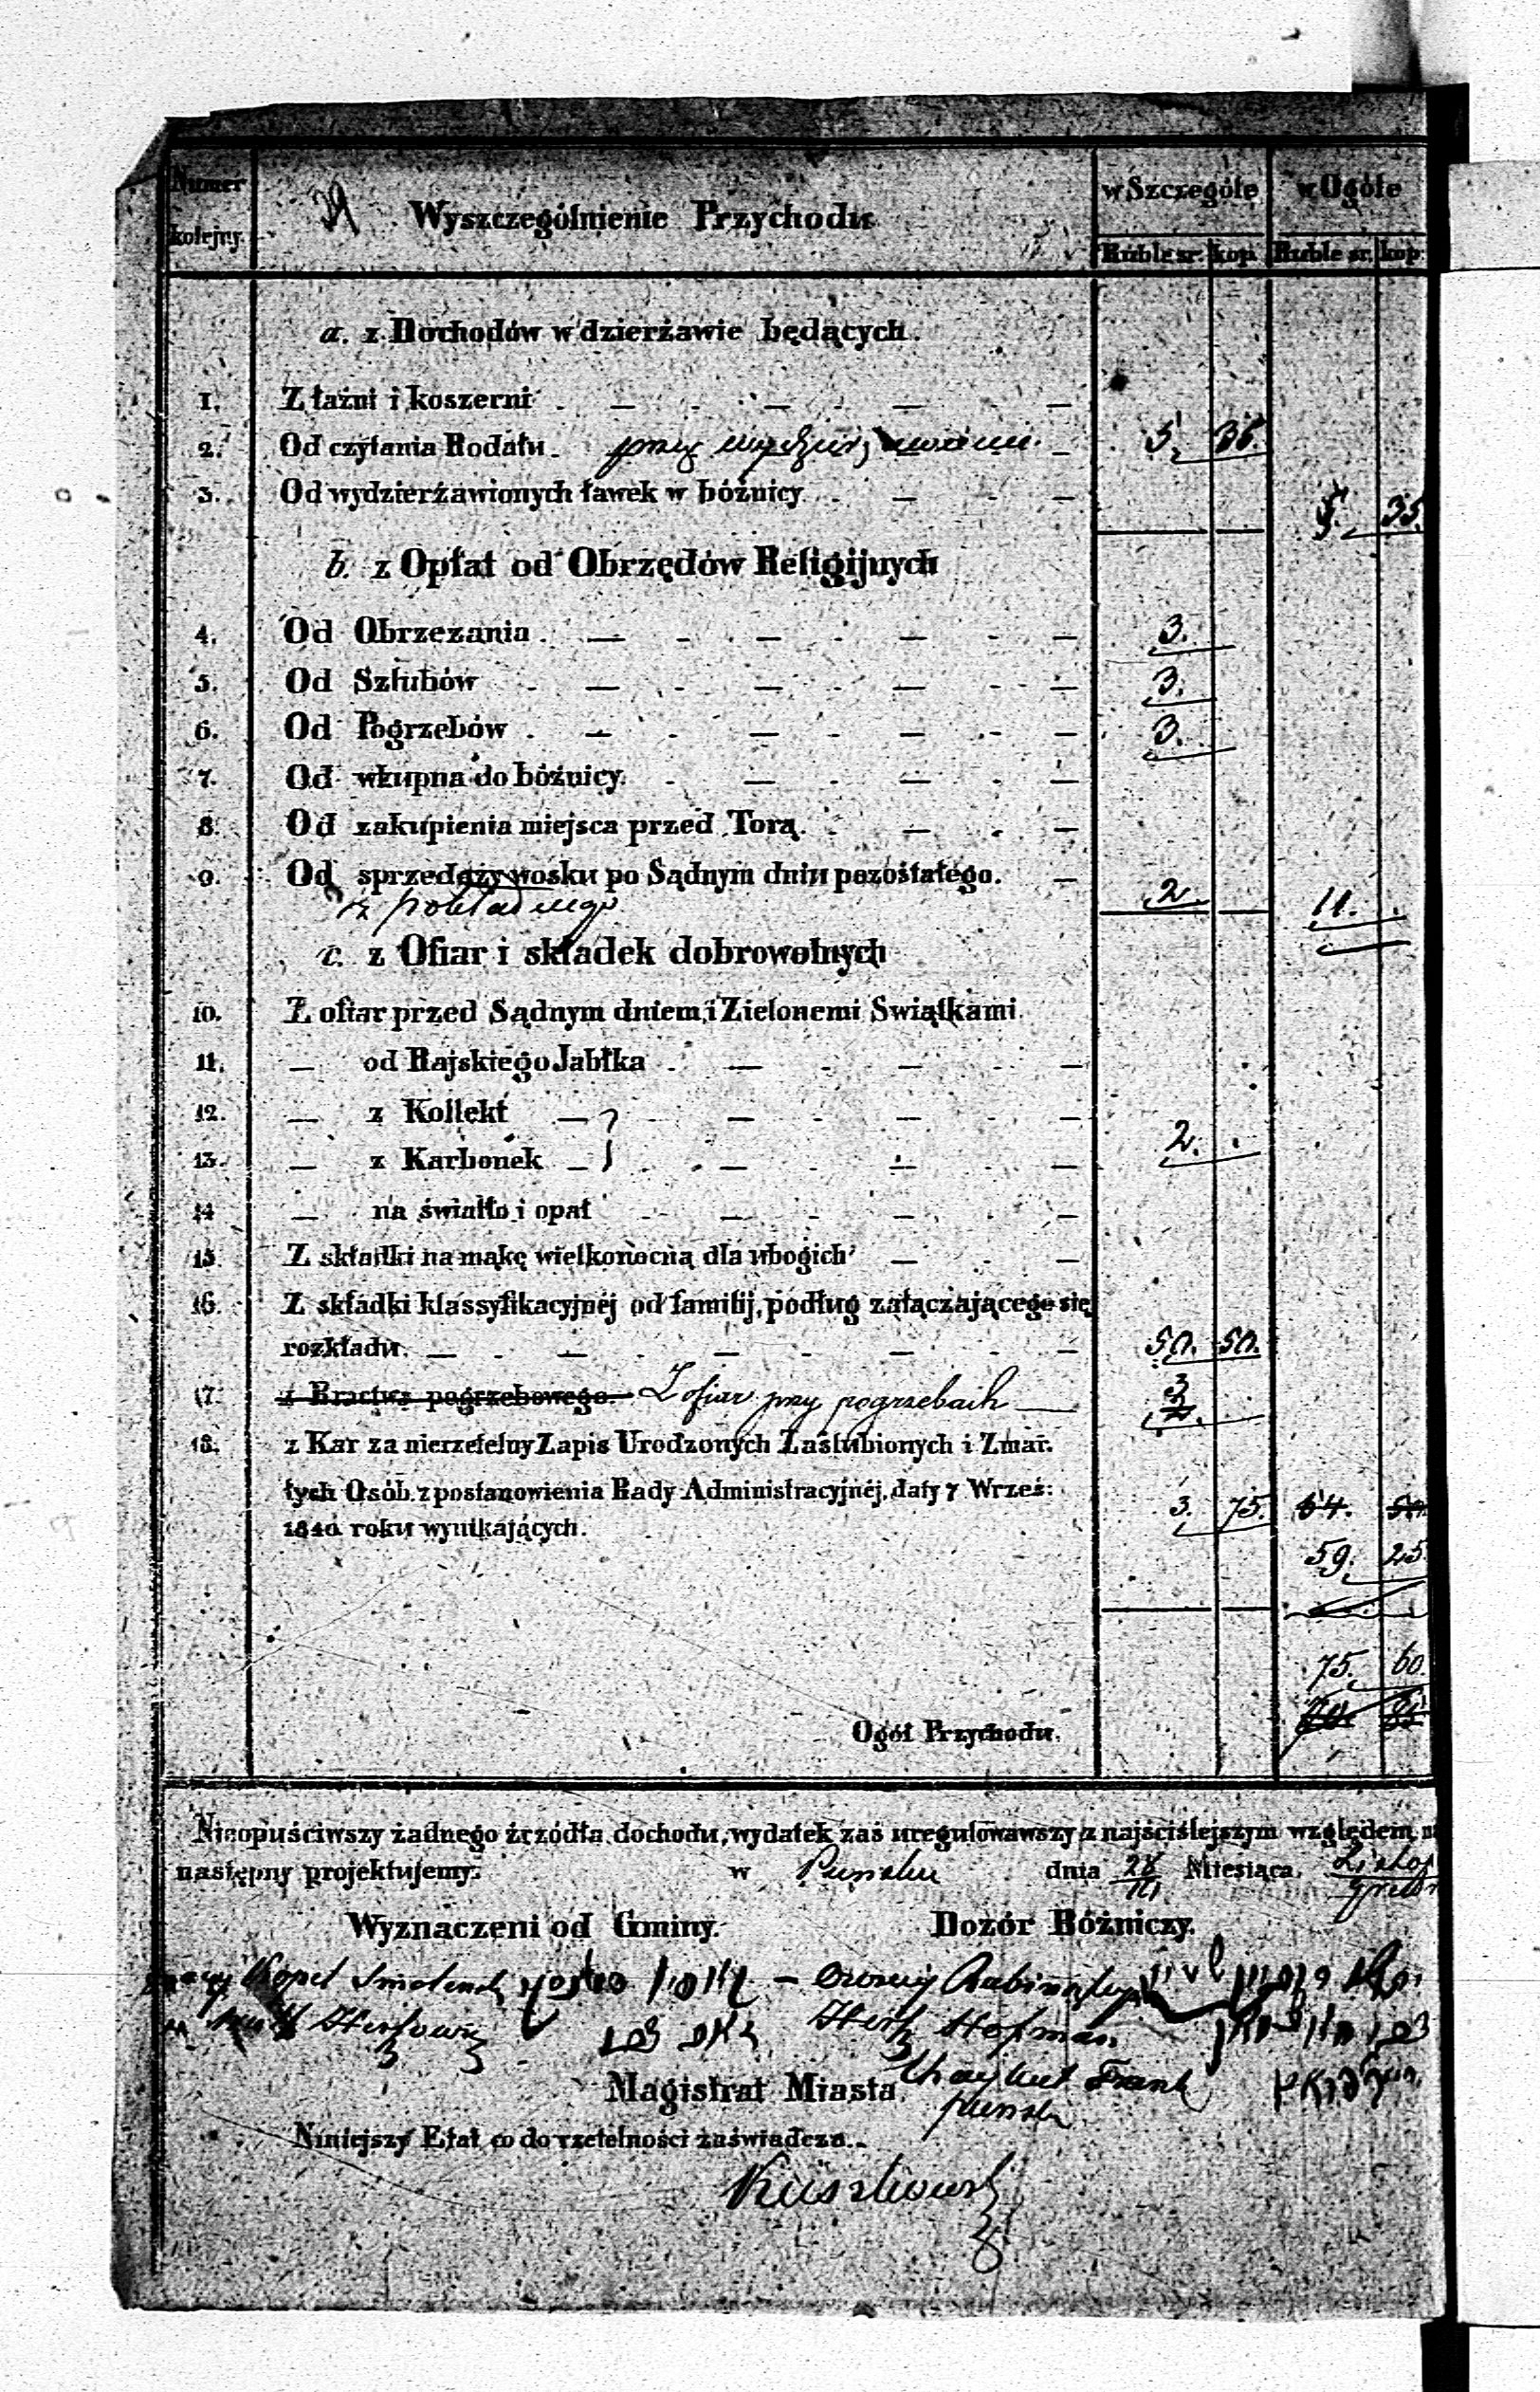 Numer kolejny. Wyszczególnienie Przychodu w Szczególe w Ogóle
Ruble sr. kop. Ruble sr. kop.
a. z Dochodów w dzierżawie będących.
1. Z łaźni i koszerni . — . — . — . —
2. Od czytania Rodału. przez — 5. 35.
3. Od wydzierżawionych ławek w bóżnicy . — . —
5. 35.
b. z Opłat od Obrzędów Religijnych
4. Od Obrzezania . — . — . — . — 3.
5. Od Szlubów . — . — . — . — 3.
6. Od Pogrzebów . — . — . — . — 3.
7. Od wkupna do bóżnicy. . — . — . —
8. Od zakupienia miejsca przed Torą. . — . —
9. Od sprzedaży wosku po Sądnym dniu pozostałego. — 2. 11.
z pokładnego
c. z Ofiar i składek dobrowolnych
10. Z ofiar przed Sądnym dniem, i Zielonemi Swiątkami
11. — od Rajskiego Jabłka . — . — . —
12. — z Kollekt — . — . — . —
13. — z Karbonek — . — . — . — 2.
14 — na światło i opał . — . — . —
15. Z składki na mąkę wielkonocną dla ubogich — . —
16. Z składki klassyfikacyjnéj od familij, podług załączającego się
rozkładu. — . — . — . — . — 50. 50.
17. z Bractwa pogrzebowego. Z ofiar przy pogrzebach — 3
18. z Kar za nierzetelny Zapis Urodzonych Zaślubionych i Zmar.
łych Osób. z postanowienia Rady Administracyjnéj, daty 7 Wrześ: 3. 75. 54.
1840 roku wynikających.
59. 25.
75. 60
Ogół Przychodu.
Nieopuściwszy żadnego źrzódła dochodu, wydatek zaś uregulowawszy z najściślejszym względem
następny projektujemy. w Puńsku dnia Miesiąca.
Wyznaczeni od Gminy. Dozór Bóżniczy.
Kopel
Hertz Hofman
Frank
Magistrat Miasta Puńska
Niniejszy Etat co do rzetelności zaświadcza.